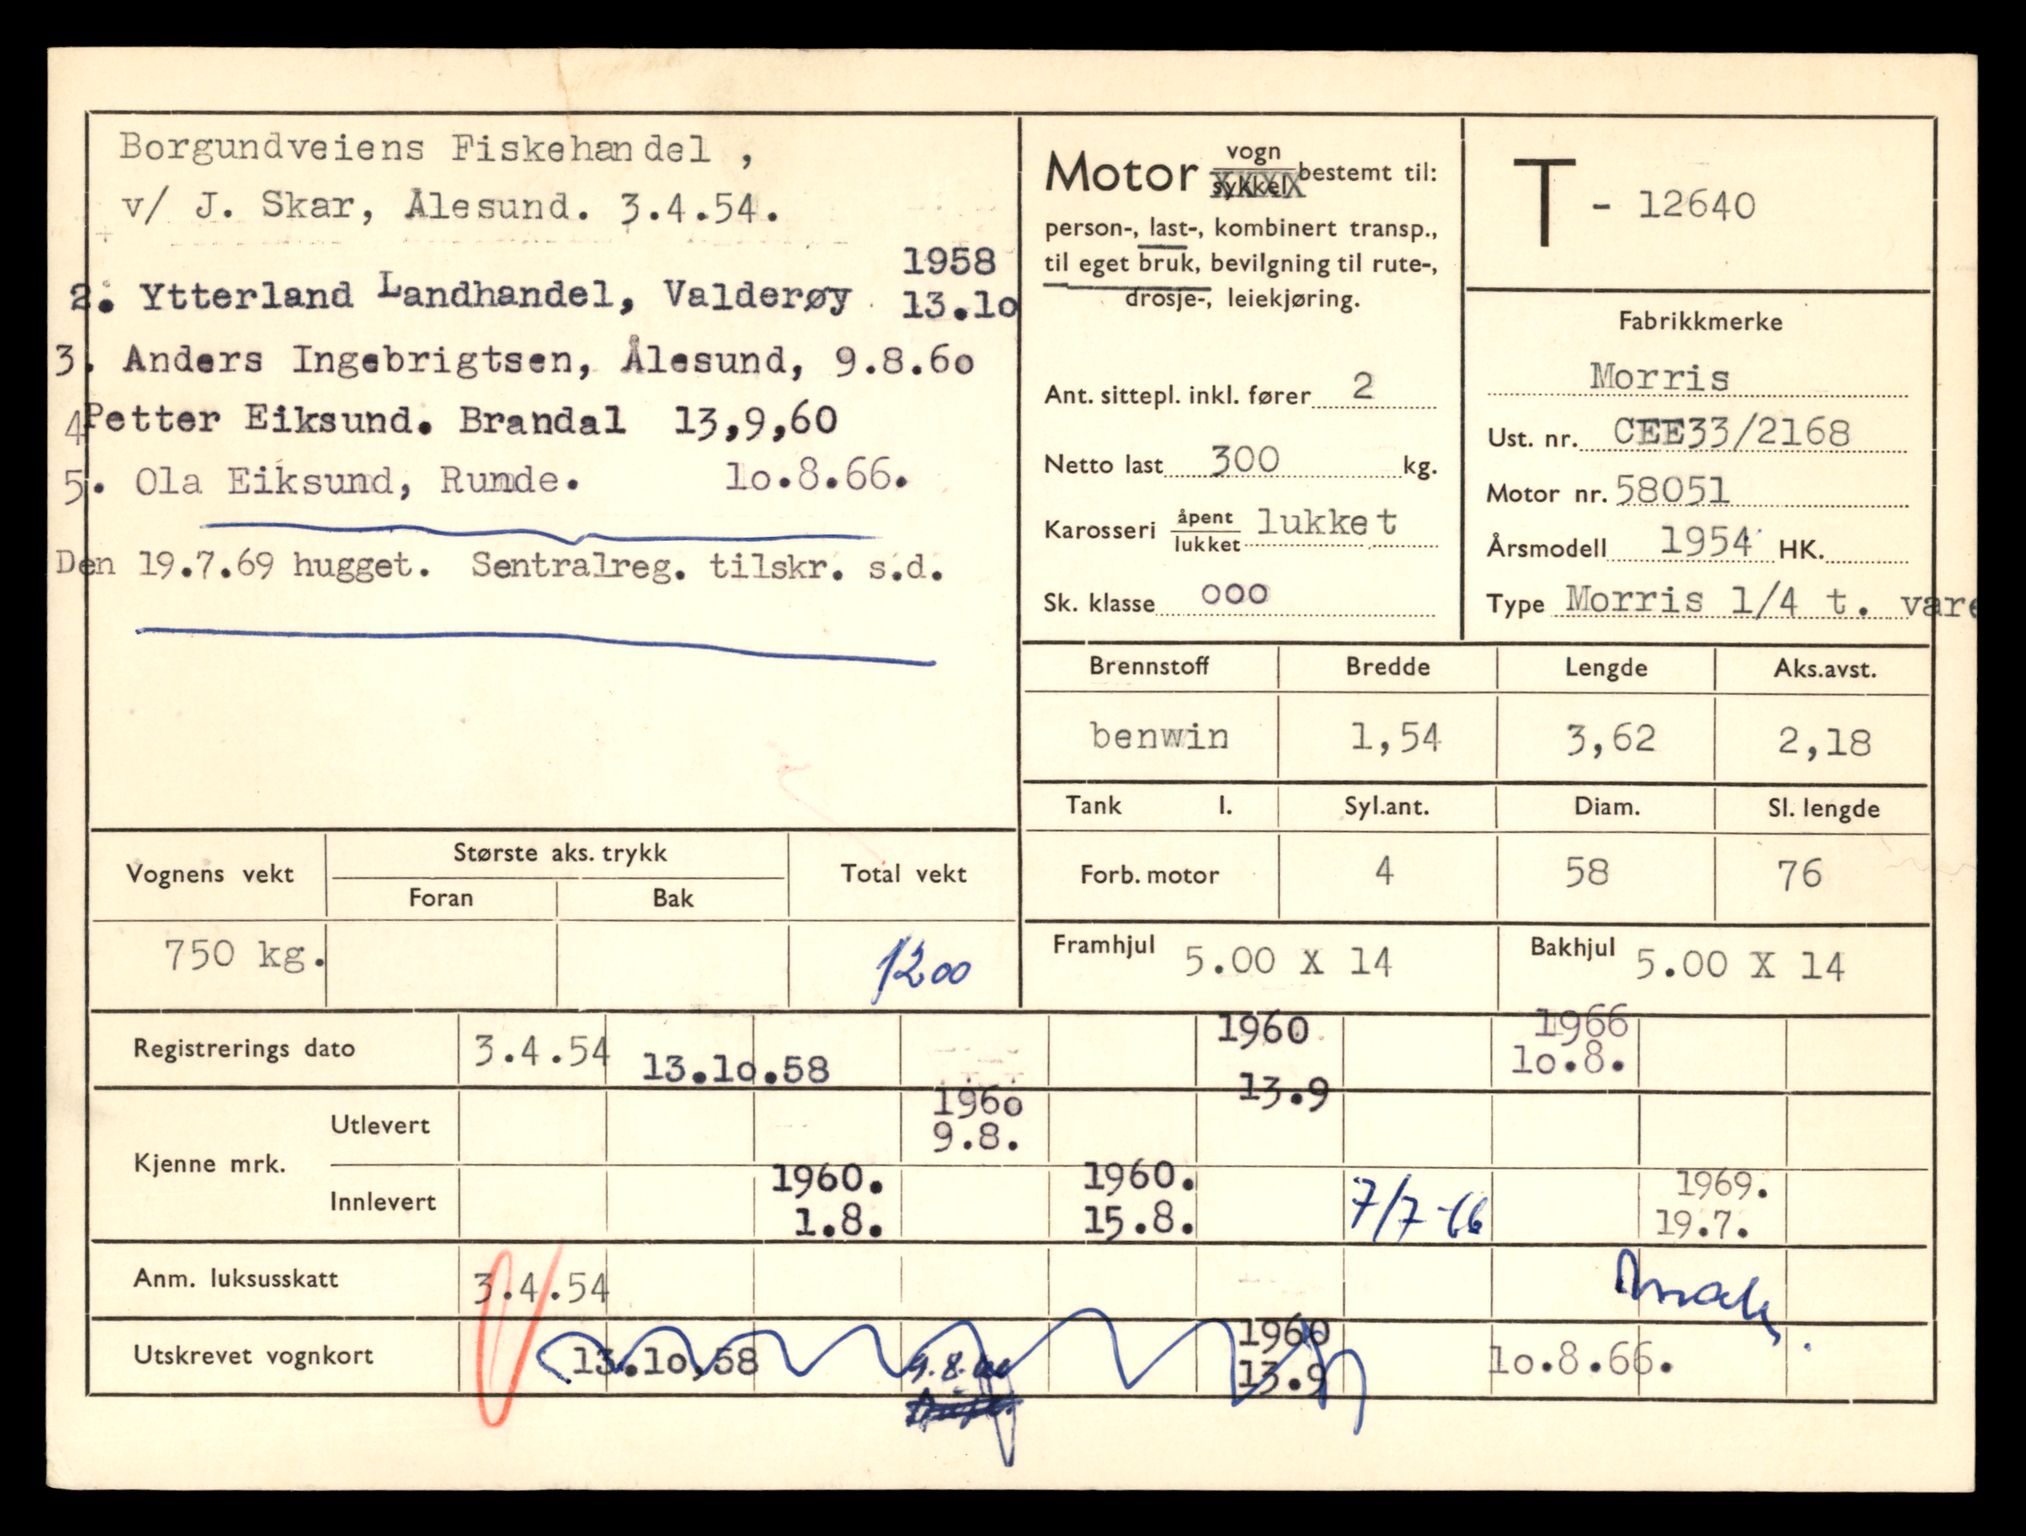 Borgundveiens Fiskehandel ,
v/ J. Skar, Ålesund. 3.4.54.
2. Ytterland Landhandel, Valderøy 1958 13.1o
3. Anders Ingebrigtsen, Ålesund, 9.8.6o
4 Petter Eiksund. Brandal 13,9,60
5. Ola Eiksund, Runde. 1o.8.66.
Den 19.7.69 hugget. Sentralreg. tilskr. s.d.
Motor vogn sykkel XXXX bestemt til:
person-, last-, kombinert transp.,
til eget bruk, bevilgning til rute-,
drosje-, leiekjøring.
Ant. sittepl. inkl. fører 2
Netto last 300 kg.
Karosseri åpent lukket lukket
Sk. klasse ooo
T - 12640
Fabrikkmerke
Morris
Ust. nr. CEE33/2168
Motor nr. 58051
Årsmodell 1954 HK.
Type Morris 1/4 t. vare
Brennstoff Bredde Lengde Aks.avst.
benwin 1,54 3,62 2,18
Tank l. Syl.ant. Diam. Sl. lengde
Forb. motor 4 58 76
Framhjul 5.00 X 14 Bakhjul 5.00 X 14
Vognens vekt Største aks. trykk Total vekt
Foran Bak
750 kg. 1200
Registrerings dato 3.4.54 13.1o.58 1960 13.9 1966 1o.8.
Kjenne mrk.
Utlevert 196o 9.8.
Innlevert 1960. 1.8. 1960. 15.8. 7/7-66 1969. 19.7.
Anm. luksusskatt 3.4.54
Utskrevet vognkort 13.1o.58 9.8.60 1960 13.9 1o.8.66.